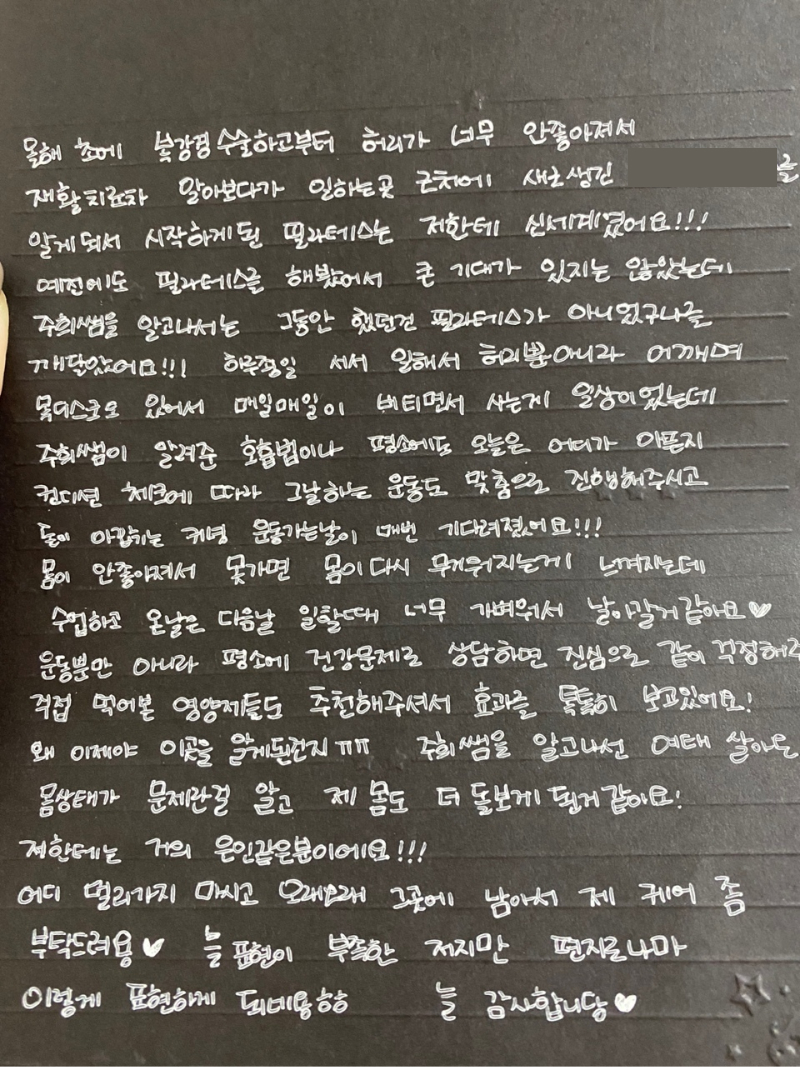 올해 초에 복강경 수술하고부터 허리가 너무 안좋아져서
재활치료차 알아보다가 일하는곳 근처에 새로생긴 를
알게되서 시작하게된 필라테스는 저한테 신세계였어요!!!
예전에도 필라테스를 해봤어서 큰 기대가 있지는 않았는데
주희쌤을 알고나서는 그동안 했던건 필라테스가 아니었구나를
깨달았어요!!! 하루종일 서서 일해서 허리뿐아니라 어깨며
목디스크도 있어서 매일매일이 버티면서 사는게 일상이었는데
주희쌤이 알려준 호흡법이나 평소에도 오늘은 어디가 아픈지
컨디션 체크에 따라 그날하는 운동도 맞춤으로 진행해주시고
돈이 아깝기는 커녕 운동가는날이 매번 기다려졌어요!!!
몸이 안좋아져서 못가면 몸이 다시 무거워지는게 느껴지는데
수업하고 온날은 다음날 일할때 너무 가벼워서 날아갈거같아요♥
운동뿐만 아니라 평소에 건강문제로 상담하면 진심으로 같이 걱정해주
직접 먹어본 영양제들도 추천해주셔서 효과를 톡톡히 보고있어요!
왜 이제야 이곳을 알게된건지ㅠㅠ 주희쌤을 알고나선 여태 살아온
몸상태가 문제란걸 알고 제 몸도 더 돌보게 된거 같아요!
저한테는 거의 은인같은분이에요!!!
어디 멀리가지 마시고 오래오래 그곳에 남아서 제 케어 좀
부탁드려용♥ 늘 표현이 부족한 저지만 편지로나마
이렇게 표현하게 되네용ㅎㅎ 늘 감사합니당♥